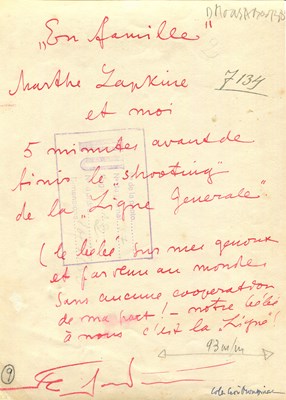 „En famille"
Marthe Lapkine
7134
et moi
5 minutes avant de
finir le „shooting"
de la „Ligne
Generale"
(le bébé sur mes genoux
est parvenu au monde
sans aucune cooperation
de ma part! – notre bébé
à nous c'est la „Ligne"!
93 m/m
9